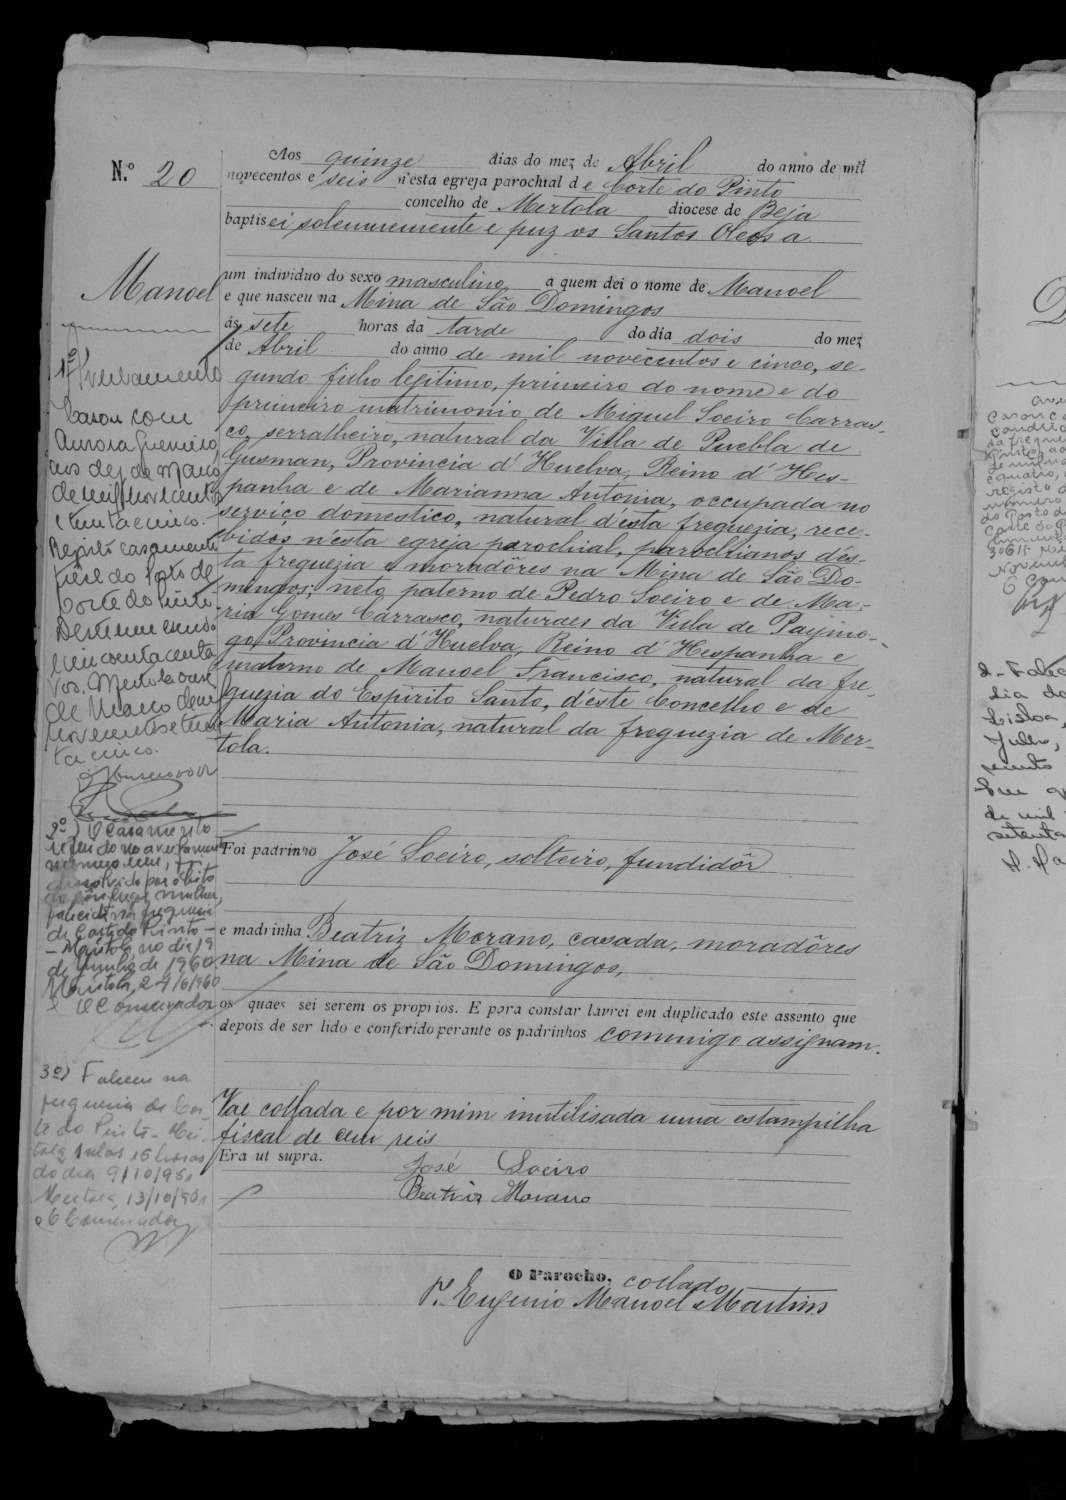 N.º 20
Manoel
Aos quinze dias do mez de Abril do anno de mil
novecentos e seis n'esta egreja parochial de Corte do Pinto
concelho de Mertola diocese de Beja
baptisei solemnemente e puz os Santos Oleos a
um individuo do sexo masculino a quem dei o nome de Manoel
e que nasceu na Mina de São Domingos
ás sete horas da tarde do dia dois do mez
de Abril do anno de mil novecentos e cinco, se-
gundo filho legitimo, primeiro do nome e do
primeiro matrimonio de Miguel Soeiro Carras-
co, serralheiro, natural da Villa de Puebla de
Gusman, Provincia d'Huelva, Reino d'Hes-
panha e de Marianna Antonia, occupada no
serviço domestico, natural d'esta freguezia, rece-
bidos n'esta egreja parochial, parochianos des-
ta freguezia e moradôres na Mina de São Do-
mingos: neto paterno de Pedro Soeiro e de Ma-
ria Gomes Carrasco, naturaes da Villa de Paymo-
go, Provincia d'Huelva, Reino d'Hespanha e
materno de Manoel Francisco, natural da fre-
guezia do Espirito Santo, d'éste Concelho e de
Maria Antonia, natural da freguezia de Mer-
tola.
Foi padrinho José Soeiro, solteiro, fundidôr
e madrinha Beatriz Morano, casada, moradôres
na Mina de São Domingos,
os quaes sei serem os proprios. E para constar lavrei em duplicado este assento que
depois de ser lido e conferido perante os padrinhos commigo assignam.
Vae collada e por mim inutilisada uma estampilha
fiscal de cem reis
Era ut supra.
José Soeiro
Beatriz Morano
O Parocho, collado
P.e Eugenio Manoel Martins
1º Averbamento
Casou com
Aurora Guerreiro,
aos de de Março
de mil novecentos
e trinta e cinco.
Registo casamento
do Posto de
Corte do Pinto
cincoenta centa
vos. Mertola onze
de Março de mil
novecentos e trin
ta e cinco.
2º) O casamento
referido no averbamento
numero um, foi
dissolvido por óbito
da mulher,
falecida na freguesia
de Corte do Pinto -
- Mértola, no dia 19
de Junho de 1960.
Mértola, 24/6/960
O Conservador
3º) Faleceu na
freguesia de Cor
te do Pinto - Mér
tola, pelas 16 horas
do dia 9/10/961
Mertola, 13/10/961
O Conservador